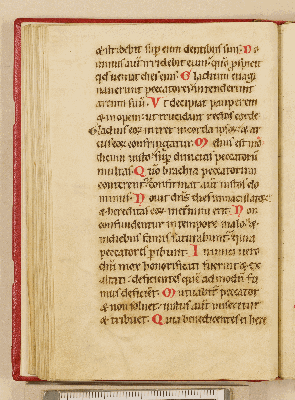 & stridebit sup eum dentibus suis. Do
minus aut irridebit eum: qm pspicit
qd ueniet dies eius. Gladium euagi
nauerunt peccatores: intenderunt
arcum suu. Vt decipiat pauperem
& inopem: ut trucidant rectos corde.
Gladius eor intret in corda ipsor: & ar
cus eor confringatur. Melius est mo
dicum iusto: sup diuicias peccatorū
multas. Qm̄ brachia peccatorum
conterent: confirmat aut iustos do
minus. Nouit dns dies immaculator:
& hereditas eor in et̄num erit. Non
confundentur in tempore malo: &
in diebus famis saturabunt: quia
peccatores pibunt. Inimici uero
dni mox honorificati fuerint & ex
altati: deficientes quē admodū fu
mus deficiēt. Mutuabit peccator
& non soluet: iustus aut miseretur
& tribuet. Quia benedicentes ei here